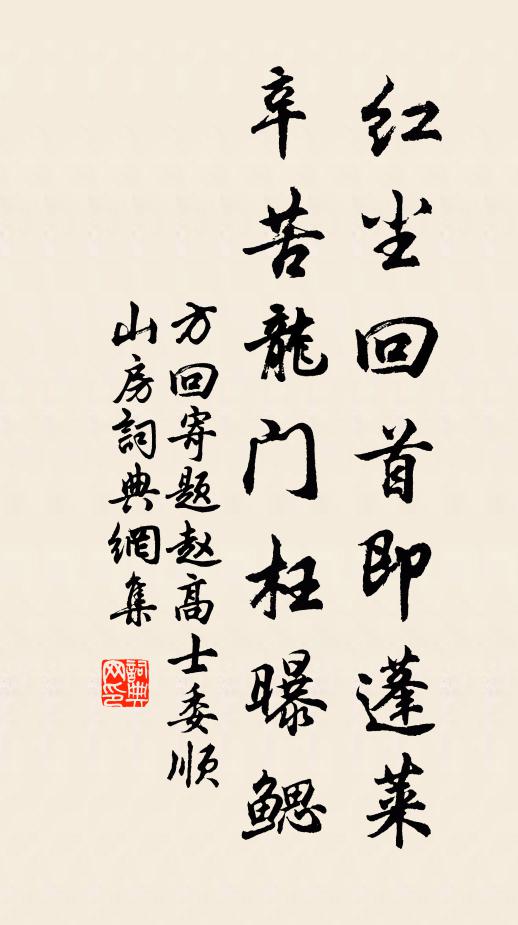 红尘回首即蓬莱
辛苦龍门枉曝鳃
方回寄题赵高士委顺
山房詞典網集
詞典网印